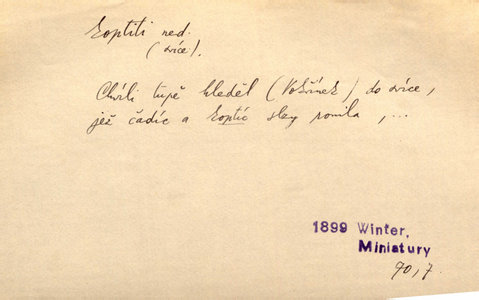 koptiti ned.
(svíce).
Chvíli tupě hleděl (Vokřínek) do svíce,
jež čadíc a koptíc slzy ronila, ...
1899 Winter,
Miniatury
90,7